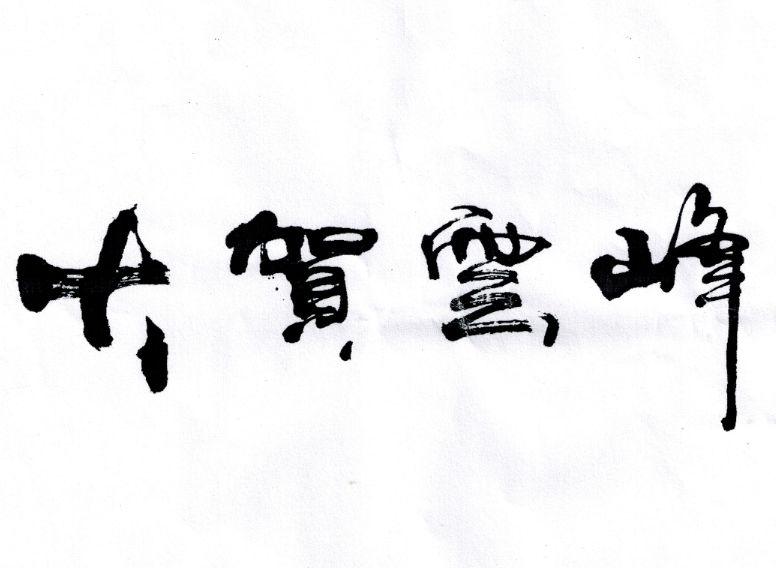 大賀雲峰